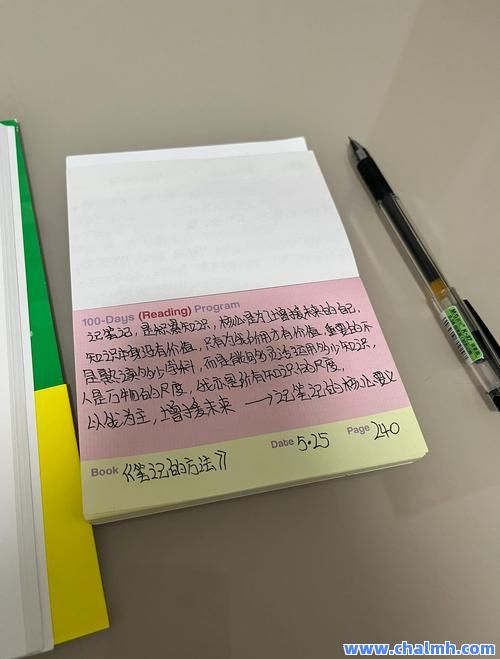 100-Days (Reading) Program
记笔记，是积累知识，核心是为了增援未来的自己，
知识本身没有价值，只有为我所用方有价值，重要的不
是熟读的多少学科，而是能够灵活运用多少知识，
人是万物的尺度，我亦是所有知识的尺度，
以我为主，增援未来 → 记笔记的核心要义
Book 《笔记的方法》 Date 5.25 Page 240
www.chalmh.com